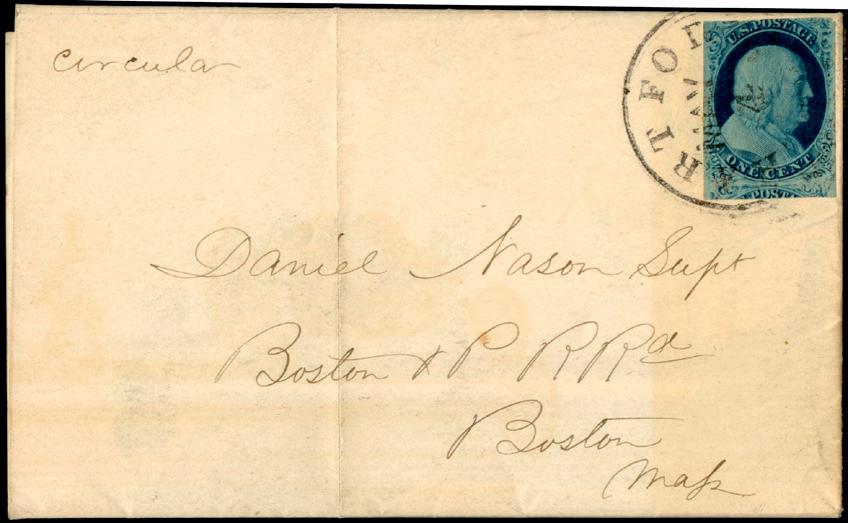 circular
RTFORD
MAY
U.S. POSTAGE
ONE CENT
Daniel Nason Supt
Boston & P R Rd
Boston
Mass